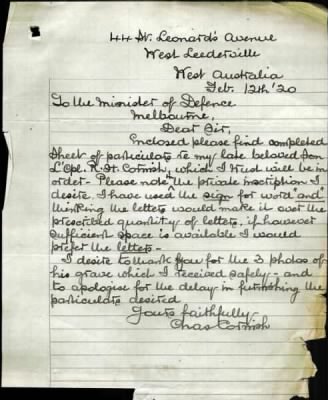 44 St. Leonard's Avenue
West Leederville
West Australia
Feb. 12th '20
To the Minister of Defence
Melbourne,
Dear Sir,
Enclosed please find completed
sheet of particulars re my late beloved Son
L/Cpl. R. H. Cornish, which I trust will be in
order - Please note the private inscription I
desire. I have used the sign for word "and"
thinking the letters would make it over the
prescribed quantity of letters, if however
sufficient space is available I would
prefer the letters -
I desire to thank you for the 3 photos of
his grave which I received safely - and
to apologise for the delay in furnishing the
particulars desired
Yours faithfully -
Chas Cornish